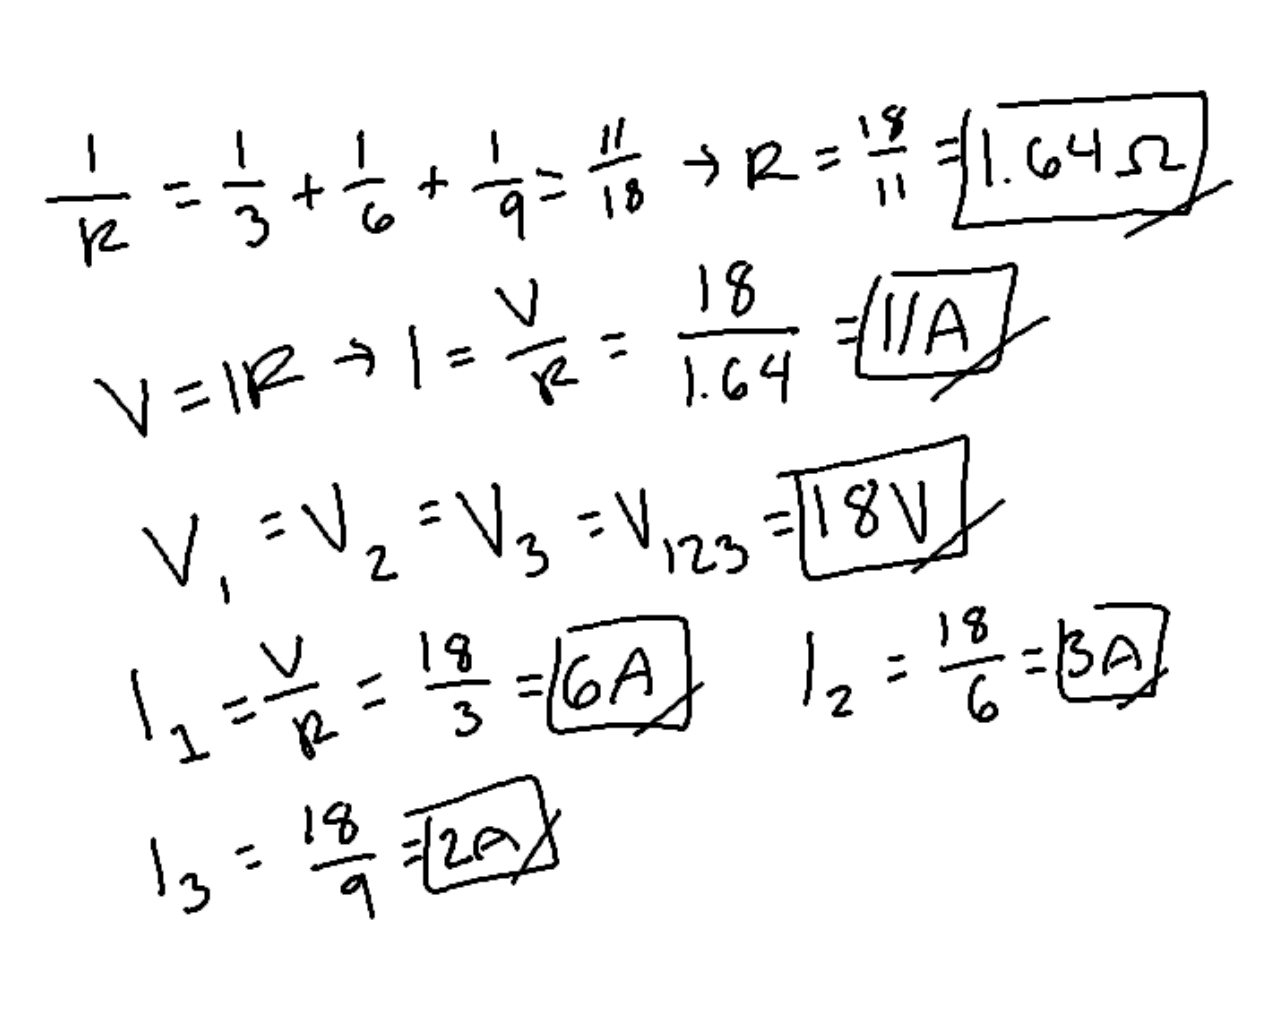 1/R = 1/3 + 1/6 + 1/9 = 11/18 → R = 18/11 = 1.64Ω
V = IR → I = V/R = 18/1.64 = 11A
V₁ = V₂ = V₃ = V₁₂₃ = 18V
I₁ = V/R = 18/3 = 6A I₂ = 18/6 = 3A
I₃ = 18/9 = 2A